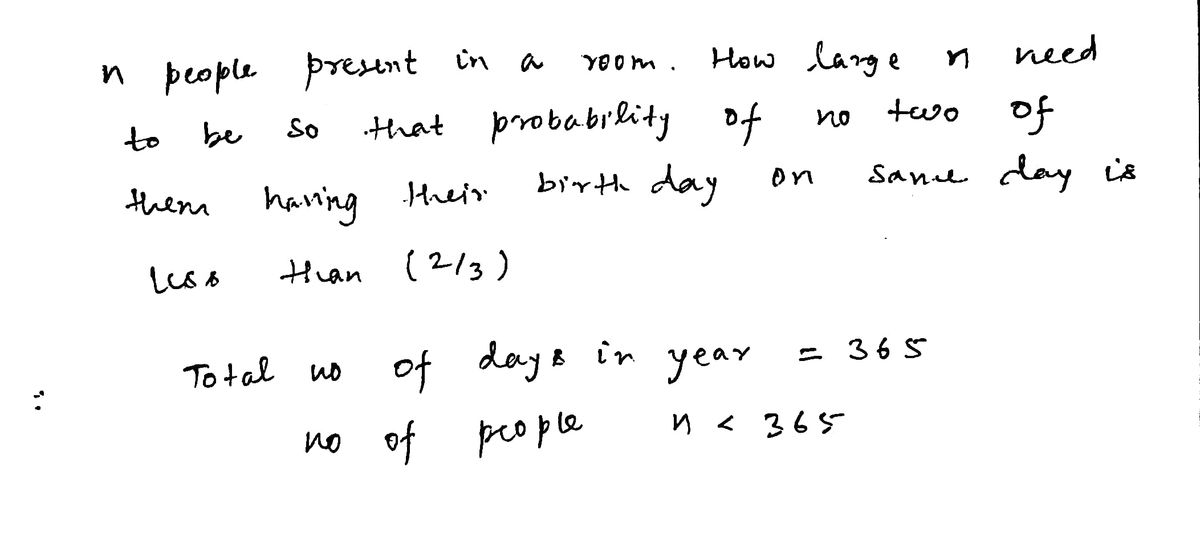 n people present in a room. How large n need
to be so that probability of no two of
them having their birth day on same day is
less than (2/3)
Total no of days in year = 365
no of people n < 365